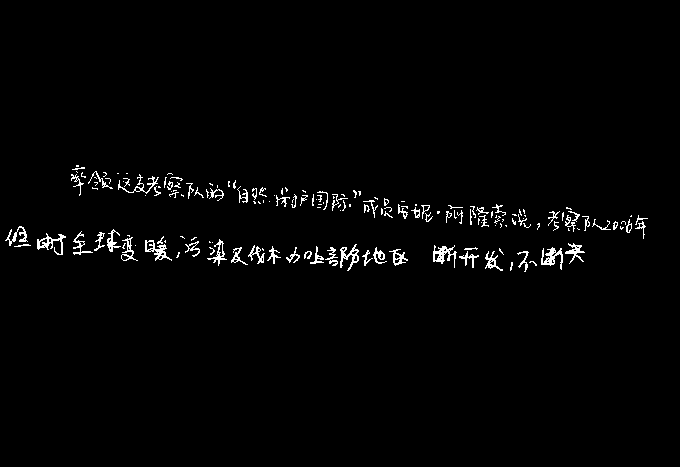 率领这支考察队的“自然保护国际”成员安妮·阿隆索说，考察队2006年
但由于全球变暖，污染及伐木力止部防地区 断开发，不断